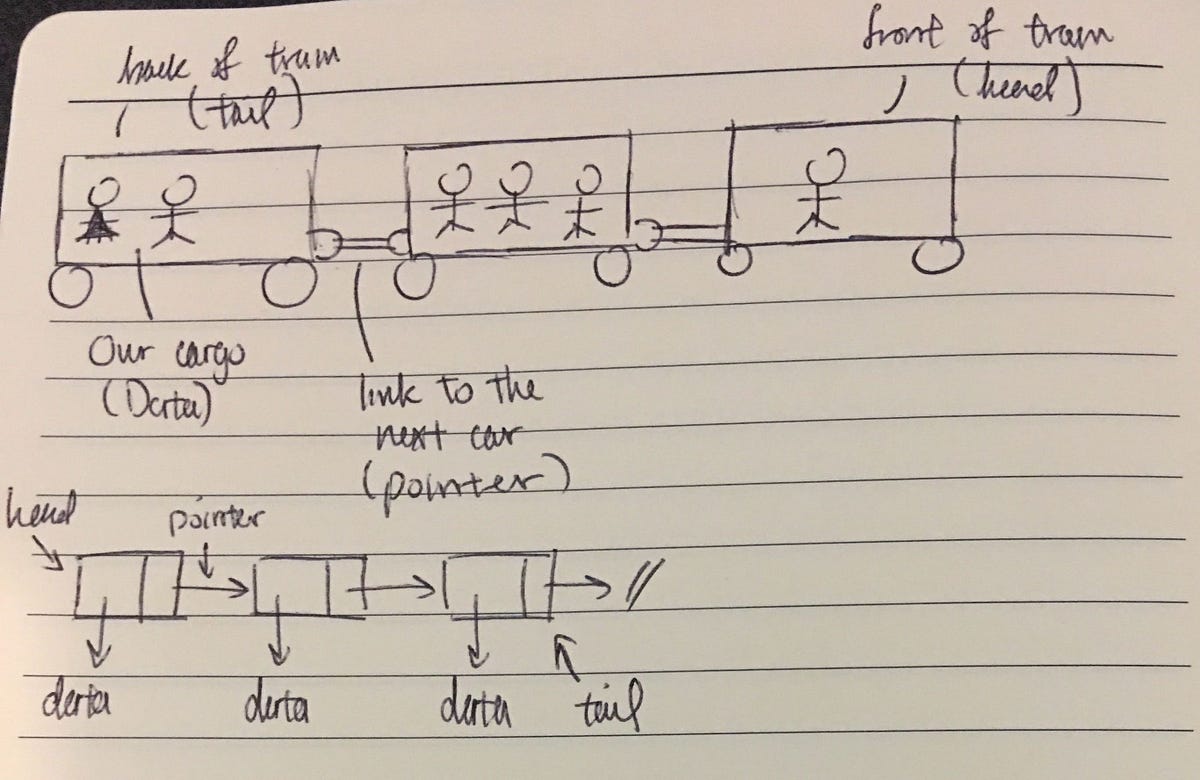 back of train
(tail)
front of train
(head)
Our cargo
(Data)
link to the
next car
(pointer)
head
pointer
data
data
data
tail